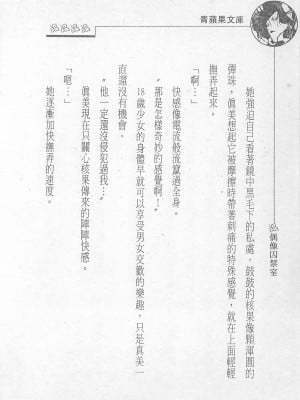 青蘋果文庫
偶像囚禁室
她強迫自己看著鏡中黑毛下的私處，鼓鼓的核果像顆渾圓的
彈珠，眞美想起它被摩擦時帶著刺痛的特殊感覺，就在上面輕輕
撫弄起來。
「啊…」
快感像電流般流竄過全身。
〝那是怎樣奇妙的感覺啊！〞
18歲少女的身體早就可以享受男女交歡的樂趣，只是真美一
直還沒有機會。
〝他一定還沒侵犯過我…〞
眞美現在只關心核果傳來的陣陣快感。
「嗯…」
她逐漸加快撫弄的速度。